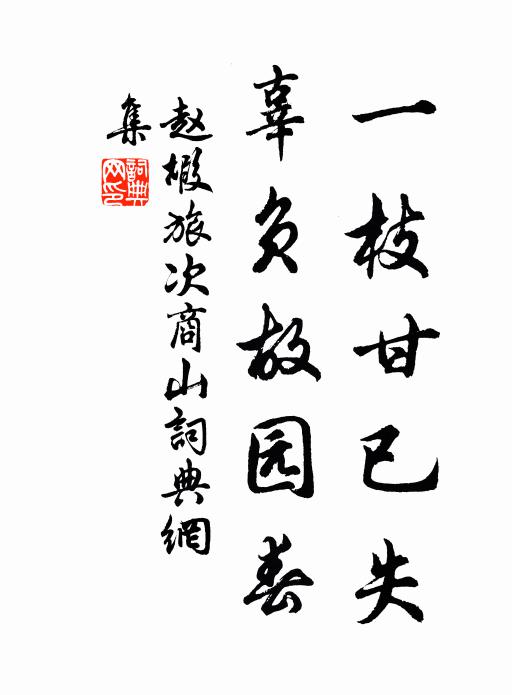 一枝甘已失
辜负故园春
赵嘏旅次商山詞典網
集
詞典網印